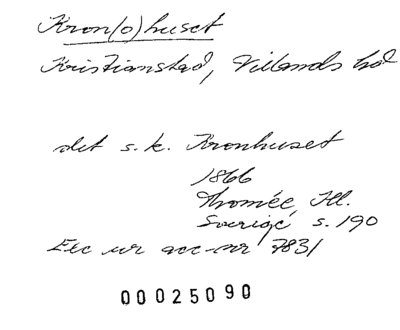 Kron(o)huset
Kristianstad, Villands hd
det s.k. Kronhuset
1866
Thomée, Ill.
Sverige s. 190
Exc ur acc-nr 7831
00025090